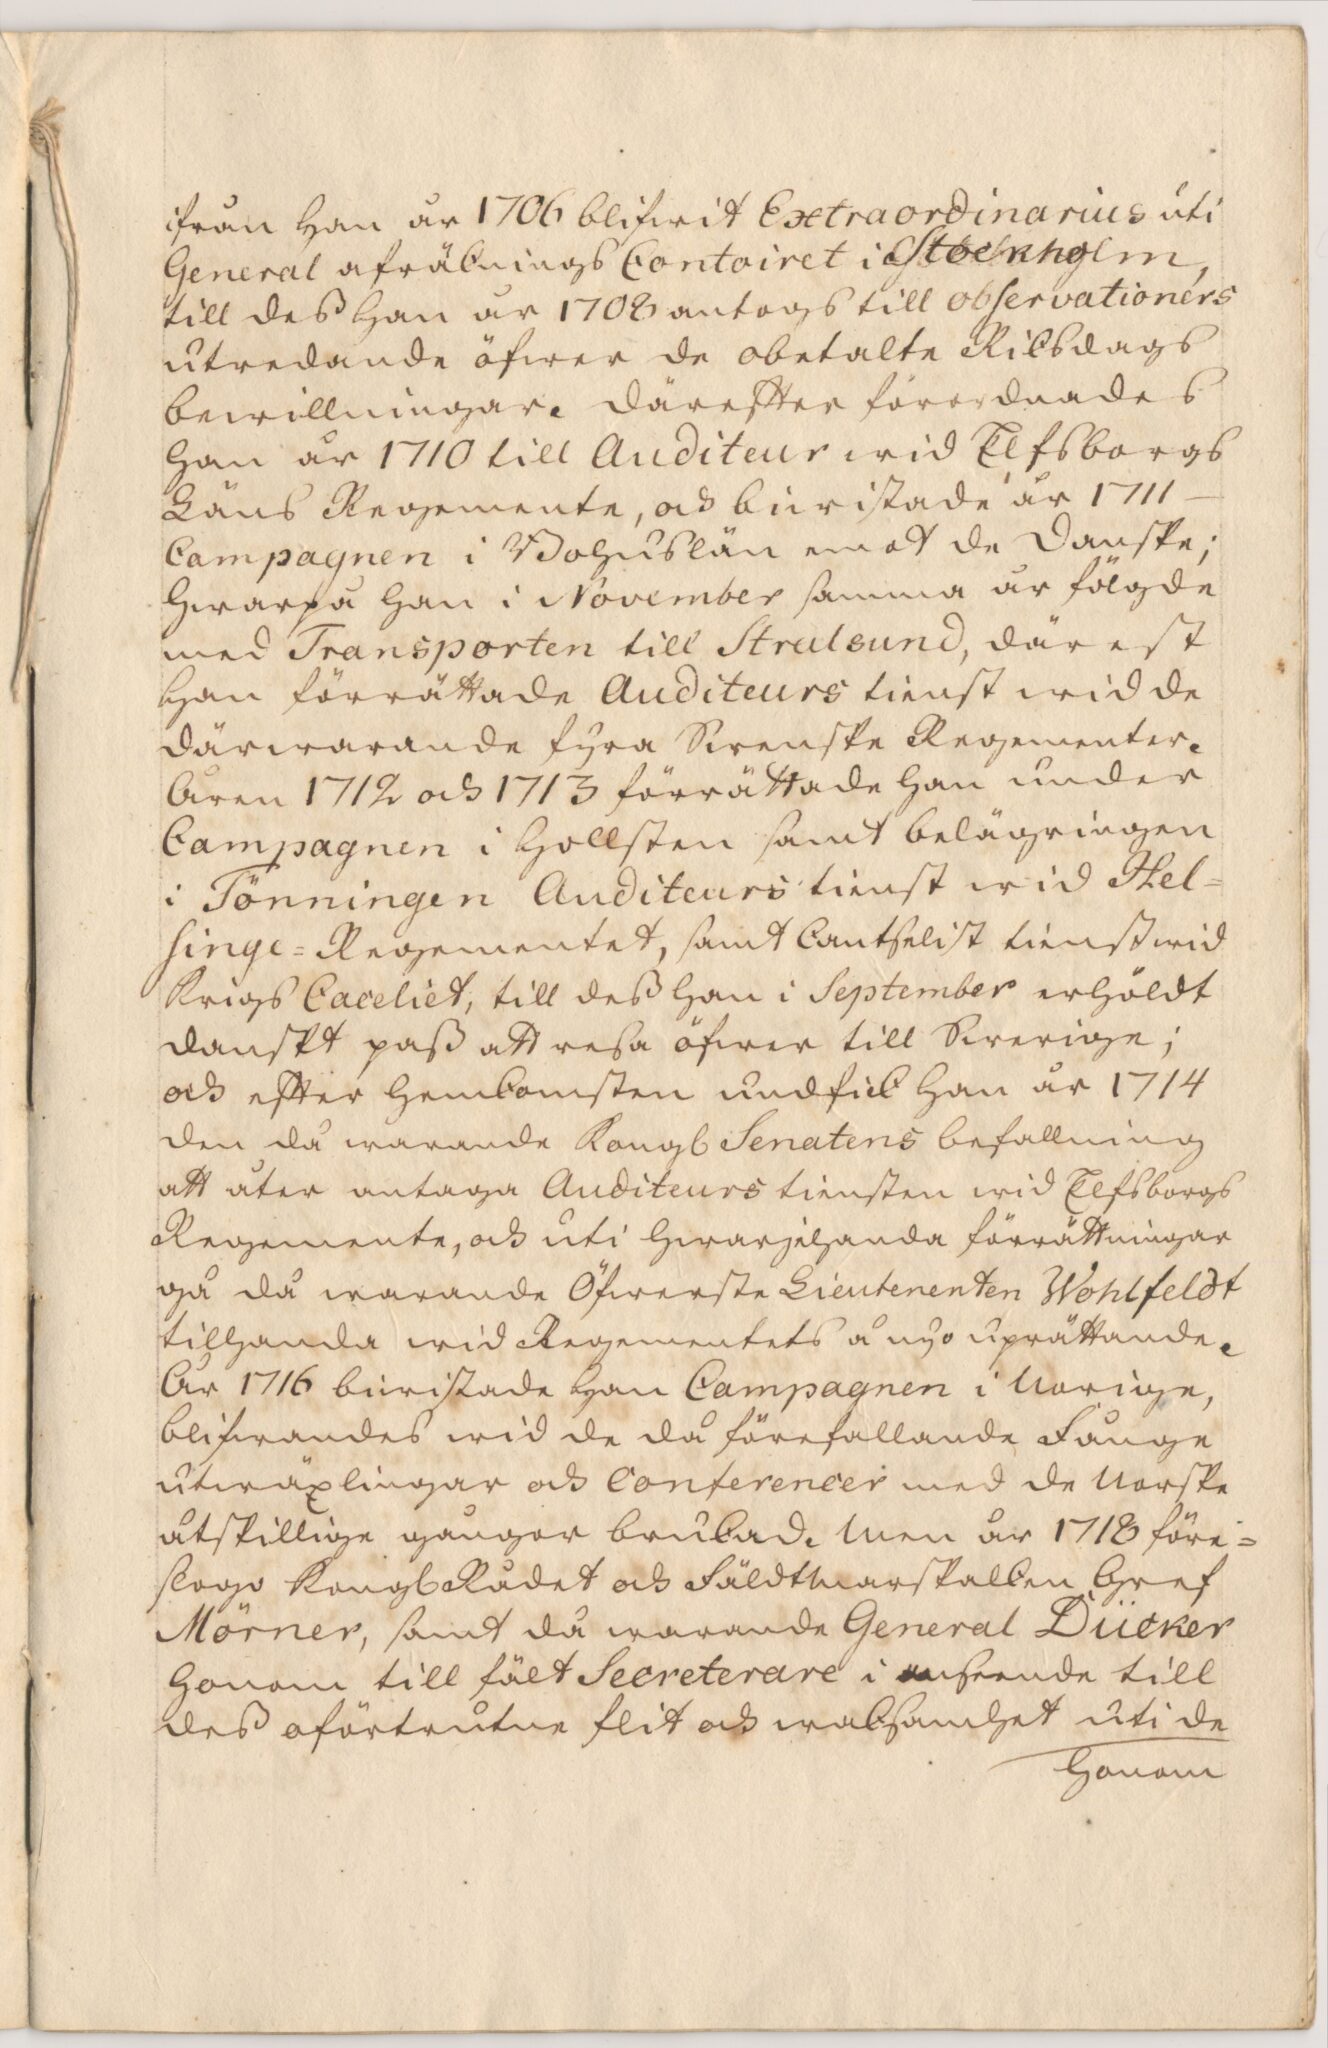 ifrån Han år 1706 blifwit Extraordinarius uti
General afräknings Contoiret i Stockholm,
till deß Han år 1708 antogs till observationers
utredande öfwer de obetalte Riksdags
bewillningar. Därefter förordnades
Han år 1710 till Auditeur wid Elfsborgs
Läns Regemente, och biwistade år 1711
Campagnen i Bohuslän emot de Danske;
Hwarpå Han i November samma år fölgde
med Transporten till Stralsund, därest
Han förrättade Auditeurs tienst wid de
därwarande fyra Swenske Regementer.
Åren 1712 och 1713 förrättade Han under
Campagnen i Hollsten samt belägringen
i Tönningen Auditeurs tienst wid Hel=
singe=Regementet, samt Cantselist tienst wid
Krigs Caceliet, till deß Han i September erhöldt
danskt paß att resa öfwer till Swerige;
och efter hemkomsten undfick Han år 1714
den då warande Kongl Senatens befallning
att åter antaga Auditeurs tiensten wid Elfsborgs
Regemente, och uti Hwarjehanda förrättningar
gå då warande Öfwerste Lieutenenten Wohlfeldt
tillhanda wid Regementets å nyo uprättande.
År 1716 biwistade Han Campagnen i Norige,
blifwandes wid de då förefallande Fånge
utwäxlingar och Conferencer med de Norske
åtskillige gångor brukad. Men år 1718 före=
slogo Kongl Rådet och Fäldtmarskalken Gref
Mörner, samt då warande General Dücker
Honom till fält Secreterare i anseende till
deß oförtrutne flit och waksamhet uti de
Honom